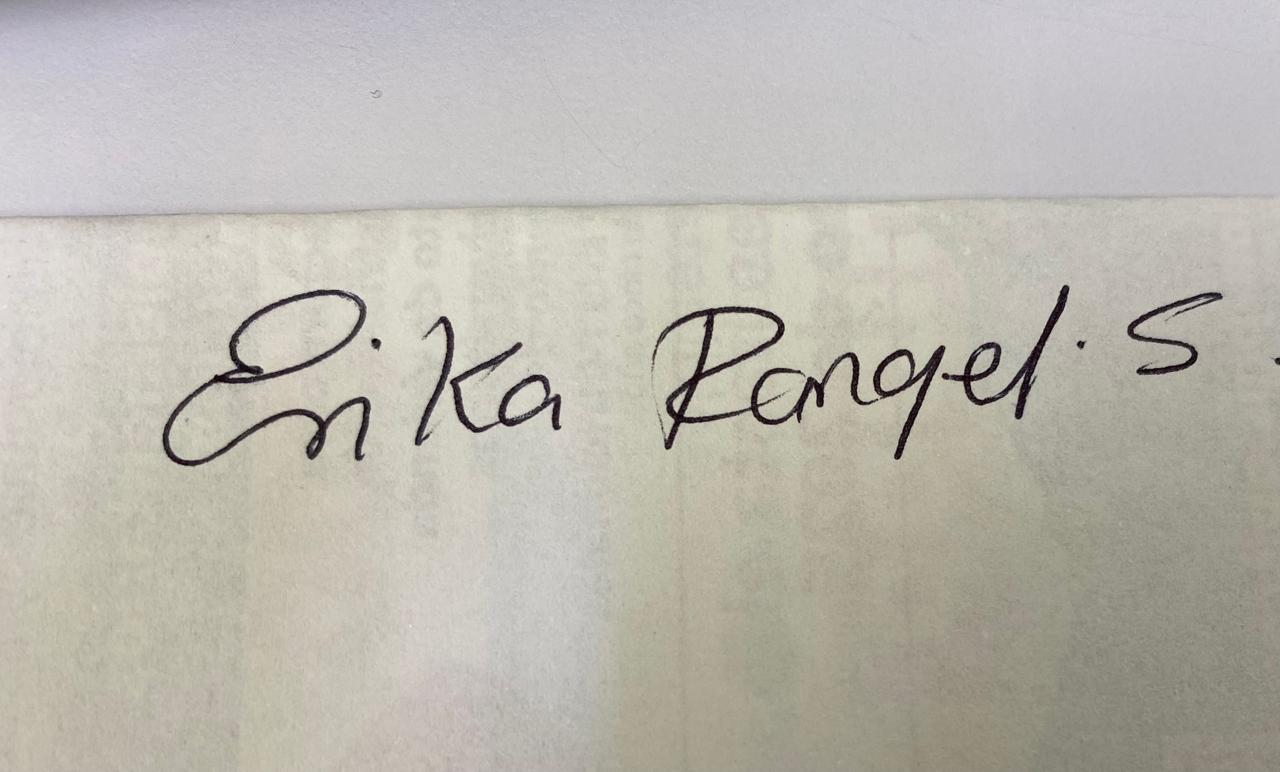 Erika Rangel. S.